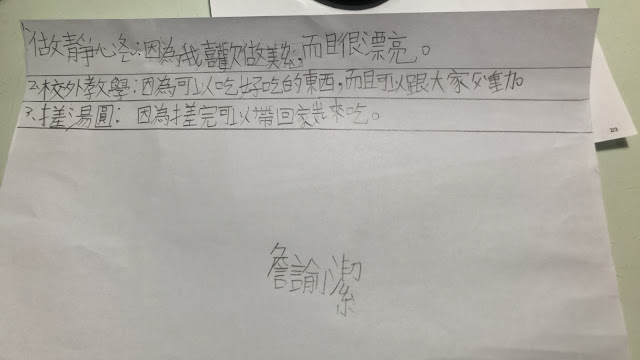 1.做靜心洛:因為我喜歡做美勞,而且很漂亮。
2.校外教學:因為可以吃好吃的東西,而且可以跟大家互動。
3.搓湯圓:因為搓完可以帶回家煮來吃。
詹諭潔